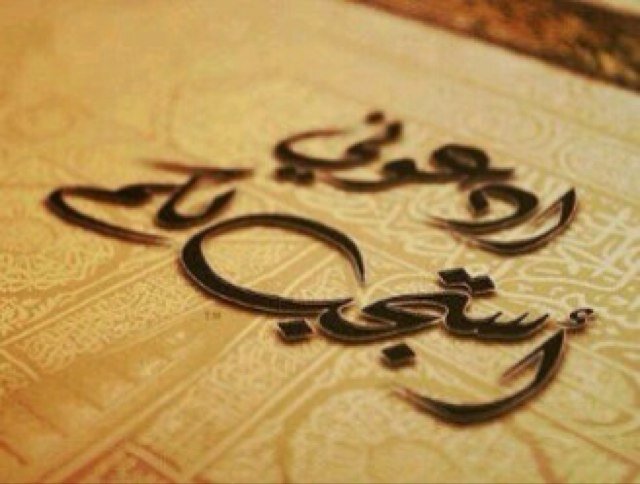 ادعوني
أستجب لكم
™